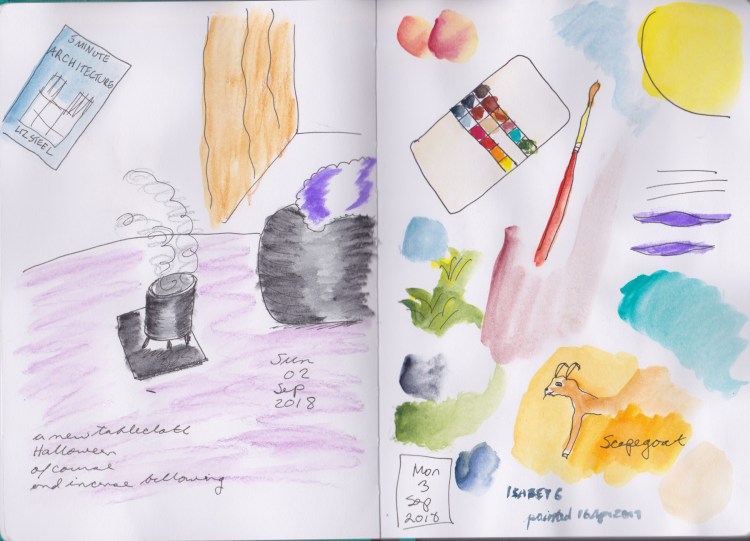 5 MINUTE
ARCHITECTURE
LIZ STEEL
Sun
02
Sep
2018
a new tablecloth
Halloween
of course
and incense billowing
Scapegoat
Mon
3
Sep
2018
painted